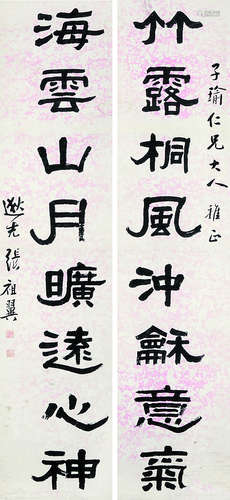 子瑜仁兄大人雅正
竹露桐風沖龢意氣
海雲山月曠遠心神
遯先張祖翼